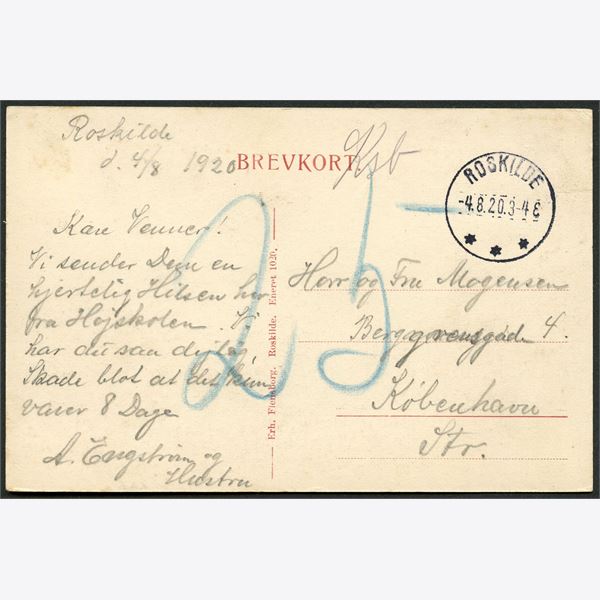 Roskilde
d. 4/8 1920
BREVKORT
Ksb
ROSKILDE
-4.8.20.3-4 E
25
Kære Venner!
Vi sender Dem en
hjertelig Hilsen her
fra Højskolen. Vi
har du saa dejlig
Skade blot at det kun
varer 8 Dage
A. Engstrøm og
Hustru
Erh. Flensborg. Roskilde. Eneret 1020.
Herr og Fru Mogensen
4.
København
Str.